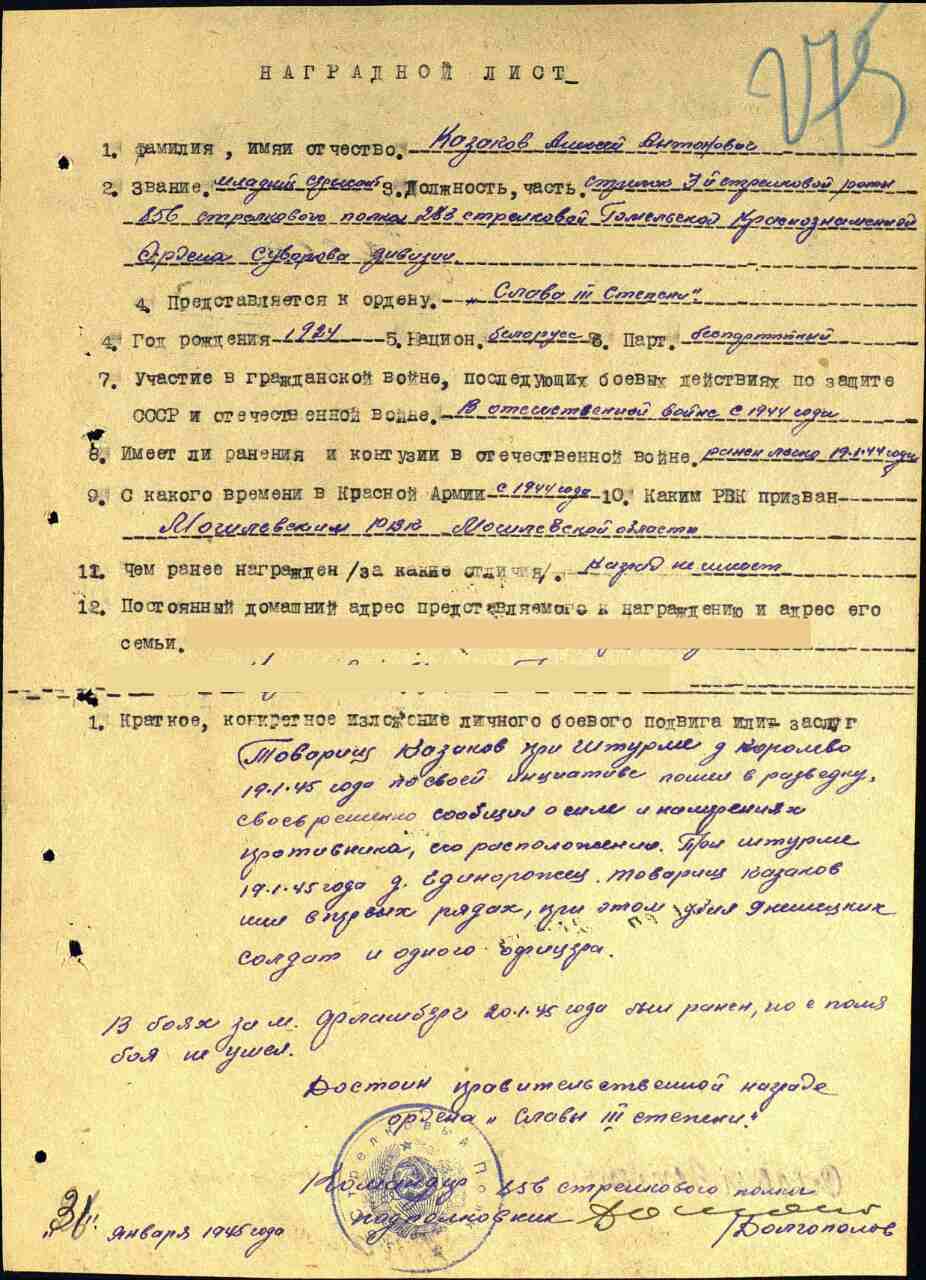 275
НАГРАДНОЙ ЛИСТ
1. Фамилия, имяи отчество. Казаков Алексей Антонович
2. Звание. младший сержант 3. Должность, часть. стрелок 7й стрелковой роты
856 стрелкового полка 283 стрелковой Гомельской Краснознаменной
Ордена Суворова дивизии
4. Представляется к ордену. „Слава III Степени".
4. Год рождения 1924 5. Национ. белорусс 6. Парт. беспартийный
7. Участие в гражданской войне, последующих боевых действиях по защите
СССР и отечественной войне. В отечественной войне с 1944 года
8. Имеет ли ранения и контузии в отечественной войне. ранен легко 19.1.44 года
9. С какого времени в Красной Армии с 1944 года 10. Каким РВК призван
Могилевским РВК Могилевской области
11. Чем ранее награжден /за какие отличия/. Наград не имеет
12. Постоянный домашний адрес представляемого к награждению и адрес его
семьи.
1. Краткое, конкретное изложение личного боевого подвига или заслуг
Товарищ Казаков при штурме д Королево
19.1.45 года по своей инциативе пошел в разведку,
своевременно сообщил о силе и намерениях
противника, его расположения. При штурме
19.1.45 года д. Единорожец. товарищ Казаков
шел в первых рядах, при этом убил немецких
солдат и одного офицера.
В боях за м. 20.1.45 года был ранен, но с поля
боя не ушел.
Достоин правительственной награде
ордена „Славы III степени."
Командир 856 стрелкового полка
подполковник /Долгополов
"31" января 1945 года